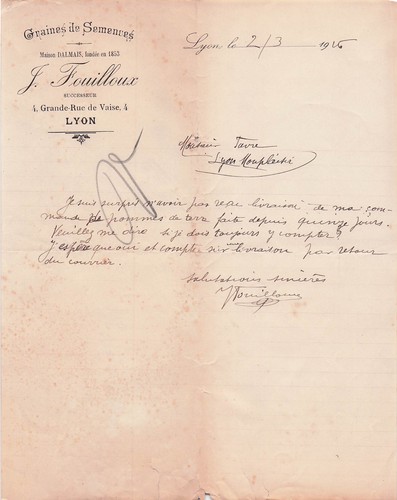 Graines de Semences
Maison DALMAIS, fondée en 1855
J. Fouilloux
SUCCESSEUR
4, Grande-Rue de Vaise, 4
LYON
Lyon le 2/3 1916
Monsieur Favre
Lyon Monplaisir
Je suis surpris n'avoir pas reçu livraison de ma com-
mande de pommes de terre faite depuis quinze jours.
Veuillez me dire si je dois toujours y compter?
J'espère que oui et compte sur une livraison par retour
du courrier.
Salutations sincères
JFouilloux